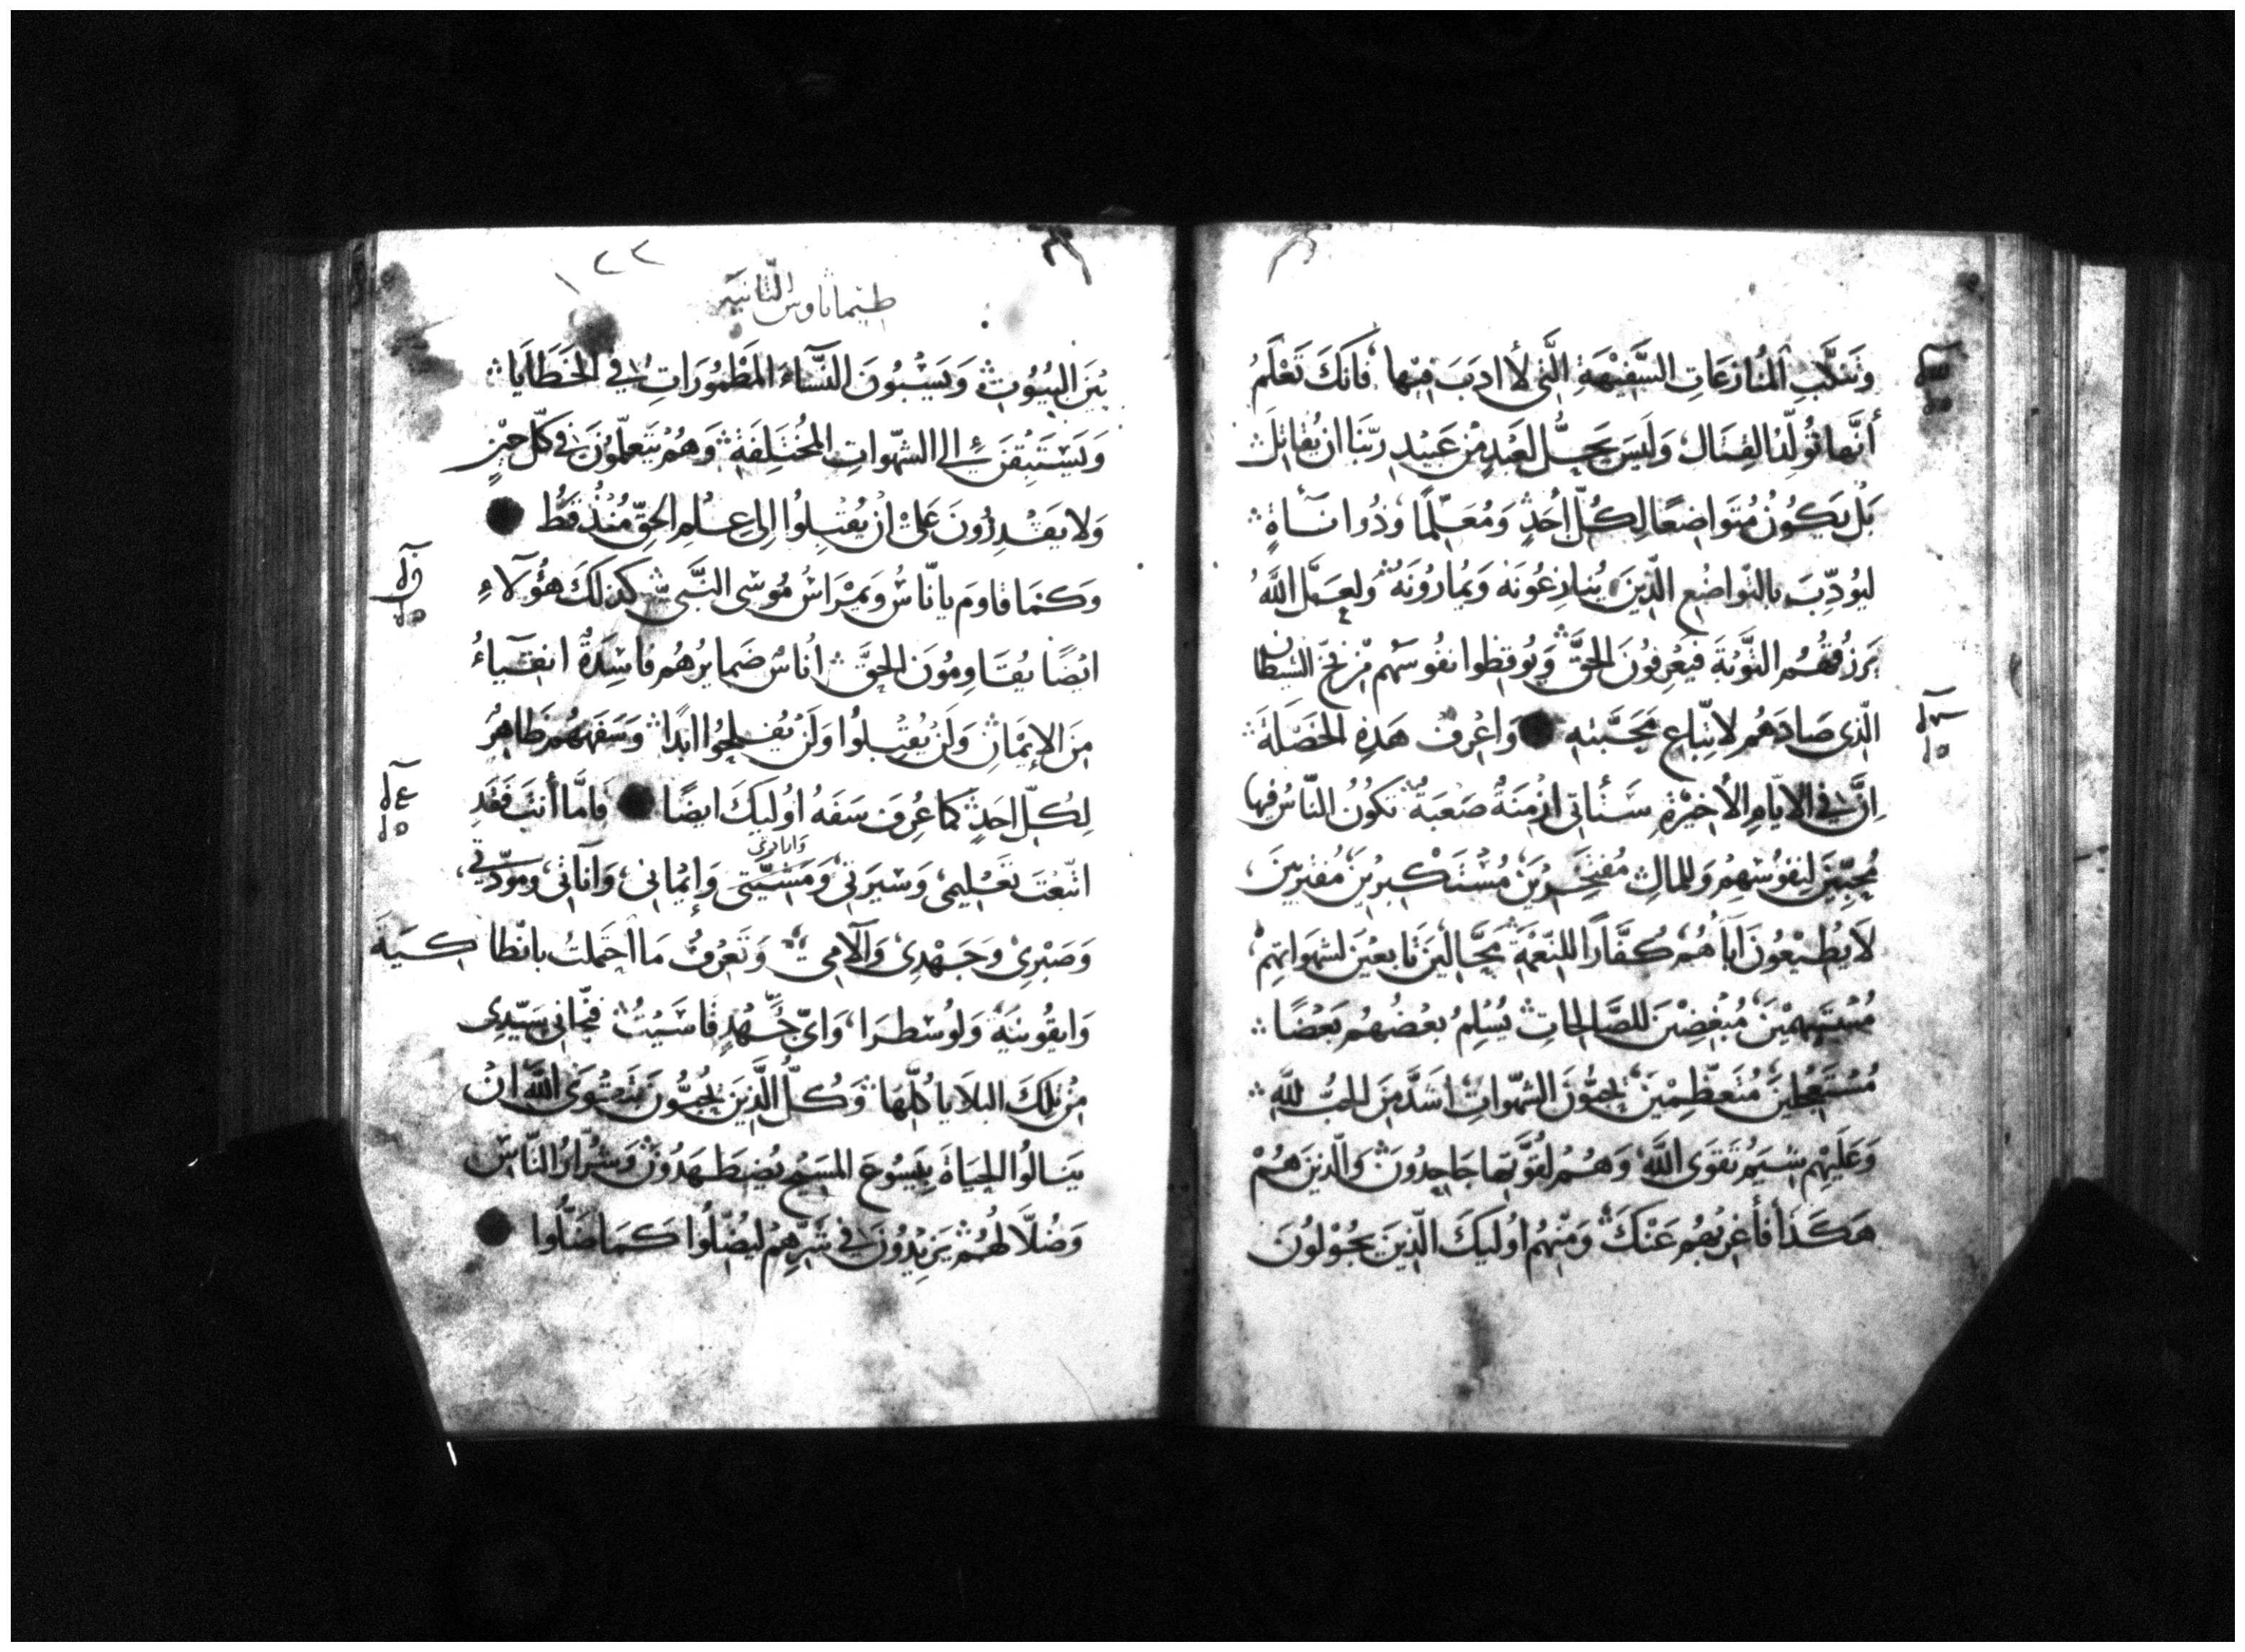 وَتَنكَّبِ المُنازعَاتِ السَّفِيْهَةِ الَّتي لأ ادَبَ فيْها فَانَكَ تَعْلَمُ
أنَّها تُولِّدُ القِتَال وَليَسَ يَحِلُّ لعَبْدٍ مِن عَبيْدِ ربّنَا ان يُقاتِلَ
بَلْ يَكُونُ مُتَواضِعًا لِكُلّ احَدٍ وَمُعَلّمًا وَذُوا نَاةٍ
ليُودِّبَ بالتّواضُعِ الّذينَ يُنازعُونَهُ وَيُمارُونَهُ ولعَلَّ اللَّهُ
يَرزُقهُمُ التَّوبَةَ فيَعْرِفُونَ الحقَّ وَيُوقظوا نفُوسَهُم مِن فخّ الشيطان
الّذى صَادَهُم لاتبّاعِ مَحَبَّتهِ وَاعْرِفْ هَذِهِ الخَصْلَةَ
اِنَّ في الايّامِ الأخيْرَةِ سَتأتي ازْمنَةٌ صَعبَةٌ تكوُنُ النّاسُ فيها
مُحِبّينَ لنفوُسْهِمُ وَللمَالِ مُفتَخِرِيْنَ مُسْتكْبرينَ مُفتَريينَ
لاَ يُطيْعُونَ ابَأهُم كُفَّارًا للنّعْمَةِ مَحَّالينَ تَابعيْنَ لشهوَاتِهمْ
مُبْغِضْينَ للصَّالحاتِ يُسْلِمُ بعْضُهُم بَعْضًا
مُسْتَعْجلينَ مُتَعظّمِيْنَ يُحِبُّونَ الشهّواتِ اشَدَّ مِنَ الحبّ للَّهِ
وَعَلَيْهِم سْيَمُ تَقوَى اللَّهِ وَهُمُ لقُوَّتِها جَاحِدُونَ وَالّذيْنَ هُمْ
هَكَذَا فأغْرِبْهُم عَنْكَ وَمنْهُم اوُلَيكَ الّذينَ يجُوْلوُنَ
١٢٢
طيماثاوس الثانيه
بيَنَ البُيُوتِ وَيَسْبُونَ النّسَآءَ المَطْمُورَاتِ في الخَطَايَا
الى الشهّواتِ المُختَلِفَةِ وَهُم يَتَعَلّمُونَ في كلّ حيْنٍ
وَلا يَقْدِرُونَ عَلَى انْ يُقْبِلُوا اِلى عِلْمِ الحقِّ مُنْذُ قَطُّ
وَكمَا قاوَمَ يانّاسُ وَيمْرَاسُ مُوسَى النَّبَّى كذلكَ هؤُلآءِ
ايْضًا يُقَاوِمُونَ الحقَّ اُناسٌ ضَمايرُهُم فاسِدَةٌ انقيَآءُ
مِنَ الإِيْمَانِ وَلَنْ يُقْبِلُوا وَلَنْ يُفلِحُوا ابَدًا وَسَفَهُهُمْ ظَاهِرٌ
لِكُلّ احَدٍ كمَا عُرِفَ سَفَهُ اوُليكَ ايضًا فامَّا أنتَ فَقدِ
اتّبَعْتَ تَعْليمى وَسْيَرتى وَمَشيّتى وَإيْمانى وَآنَاتى وَمَودّتي
وَصَبْرِى وَجَهْدِى وَآلامِى وَتَعرِفُ مَا احتَملتُ بانْطاكيَةَ
وَايقُونيَةَ وَلوُسْطرَا وَاىّ جَهْدٍ قاسَيْتُ فنَجّانى سَيّدِى
مِنْ تلكَ البلاَيا كلّهَا وَكُلُّ الَّذينَ يُحِبُّونَ تَقوَى اللَّهِ انْ
يَنالُوا الحيَاةَ بِيَسُوعَ المسَيْحِ يُضطَهَدُونَ وَشِرَارُ النَّاسِ
وَضُلّالهُمْ يَزِيْدُونَ في شَرِّهِم ليُضِلّوُا كمَا ضَلُّوا